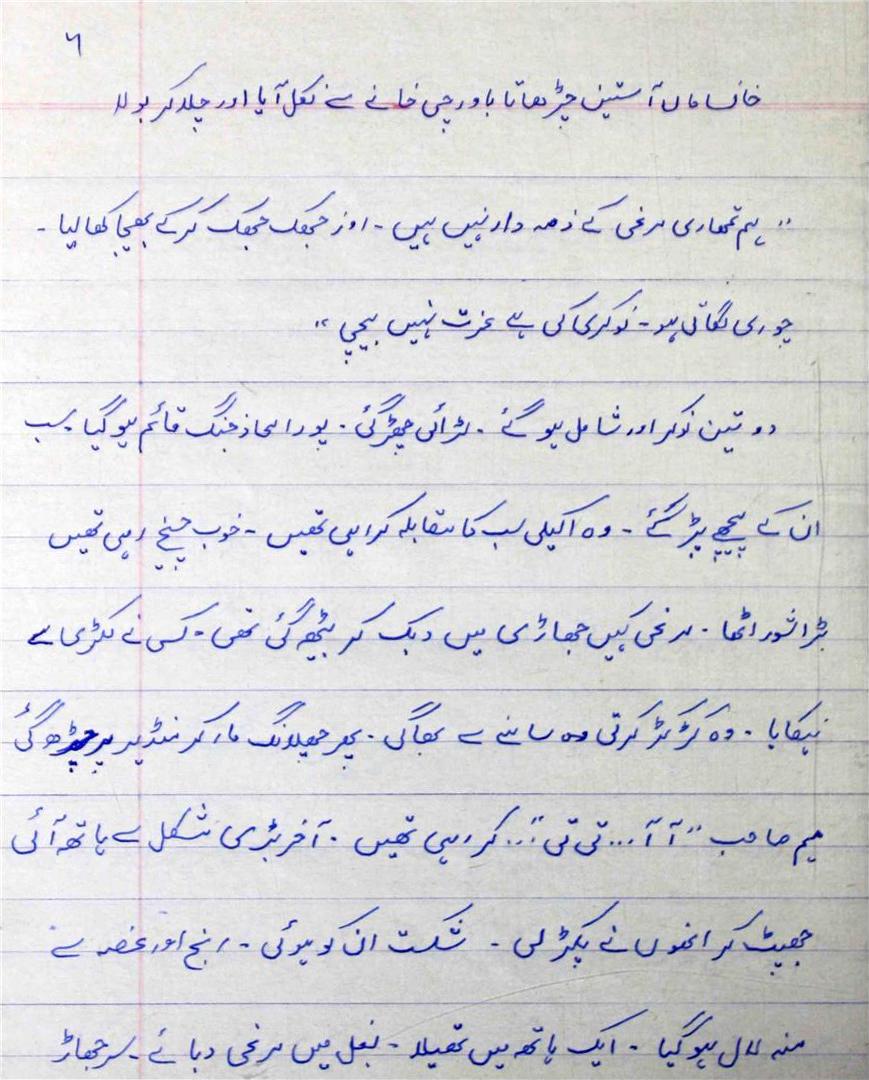 ۶
خانساماں آستین چڑھاتا باورچی خانے سے نکل آیا اور چلا کر بولا
" ہم تمھاری مرغی کے ذمہ دار نہیں ہیں ۔ اوز جھک جھک کرکے بھیجا کھا لیا ۔
چوری لگاتی ہو ۔ نوکری کی ہے عزت نہیں بیچی "
دو تین نوکر اور شامل ہو گئے ۔ لڑائی چھڑ گئی ۔ پورا محاذ جنگ قائم ہو گیا سب
ان کے پیچھے پڑ گئے ۔ وہ اکیلی سب کا مقابلہ کر رہی تھیں ۔ خوب چیخ رہی تھیں
بڑا شور اٹھا ۔ مرغی کہیں جھاڑی میں دبک کر بیٹھ گئی تھی ۔ کسی نے لکڑی سے
ہنکایا ۔ وہ کڑ کڑ کرتی وہ سامنے سے بھاگی ۔ پھر چھلانگ مار کر منڈیر پر چڑھ گئی
میم صاحب " آ آ ... تی تی " ... کر رہی تھیں ۔ آخر بڑی مشکل سے ہاتھ آئی
جھپٹ کر انھوں نے پکڑ لی ۔ شکست ان کو ہوئی ۔ رنج اور غصہ سے
منہ لال ہو گیا ۔ ایک ہاتھ میں تھیلا ۔ بغل میں مرغی دبائے ۔ سر جھاڑ